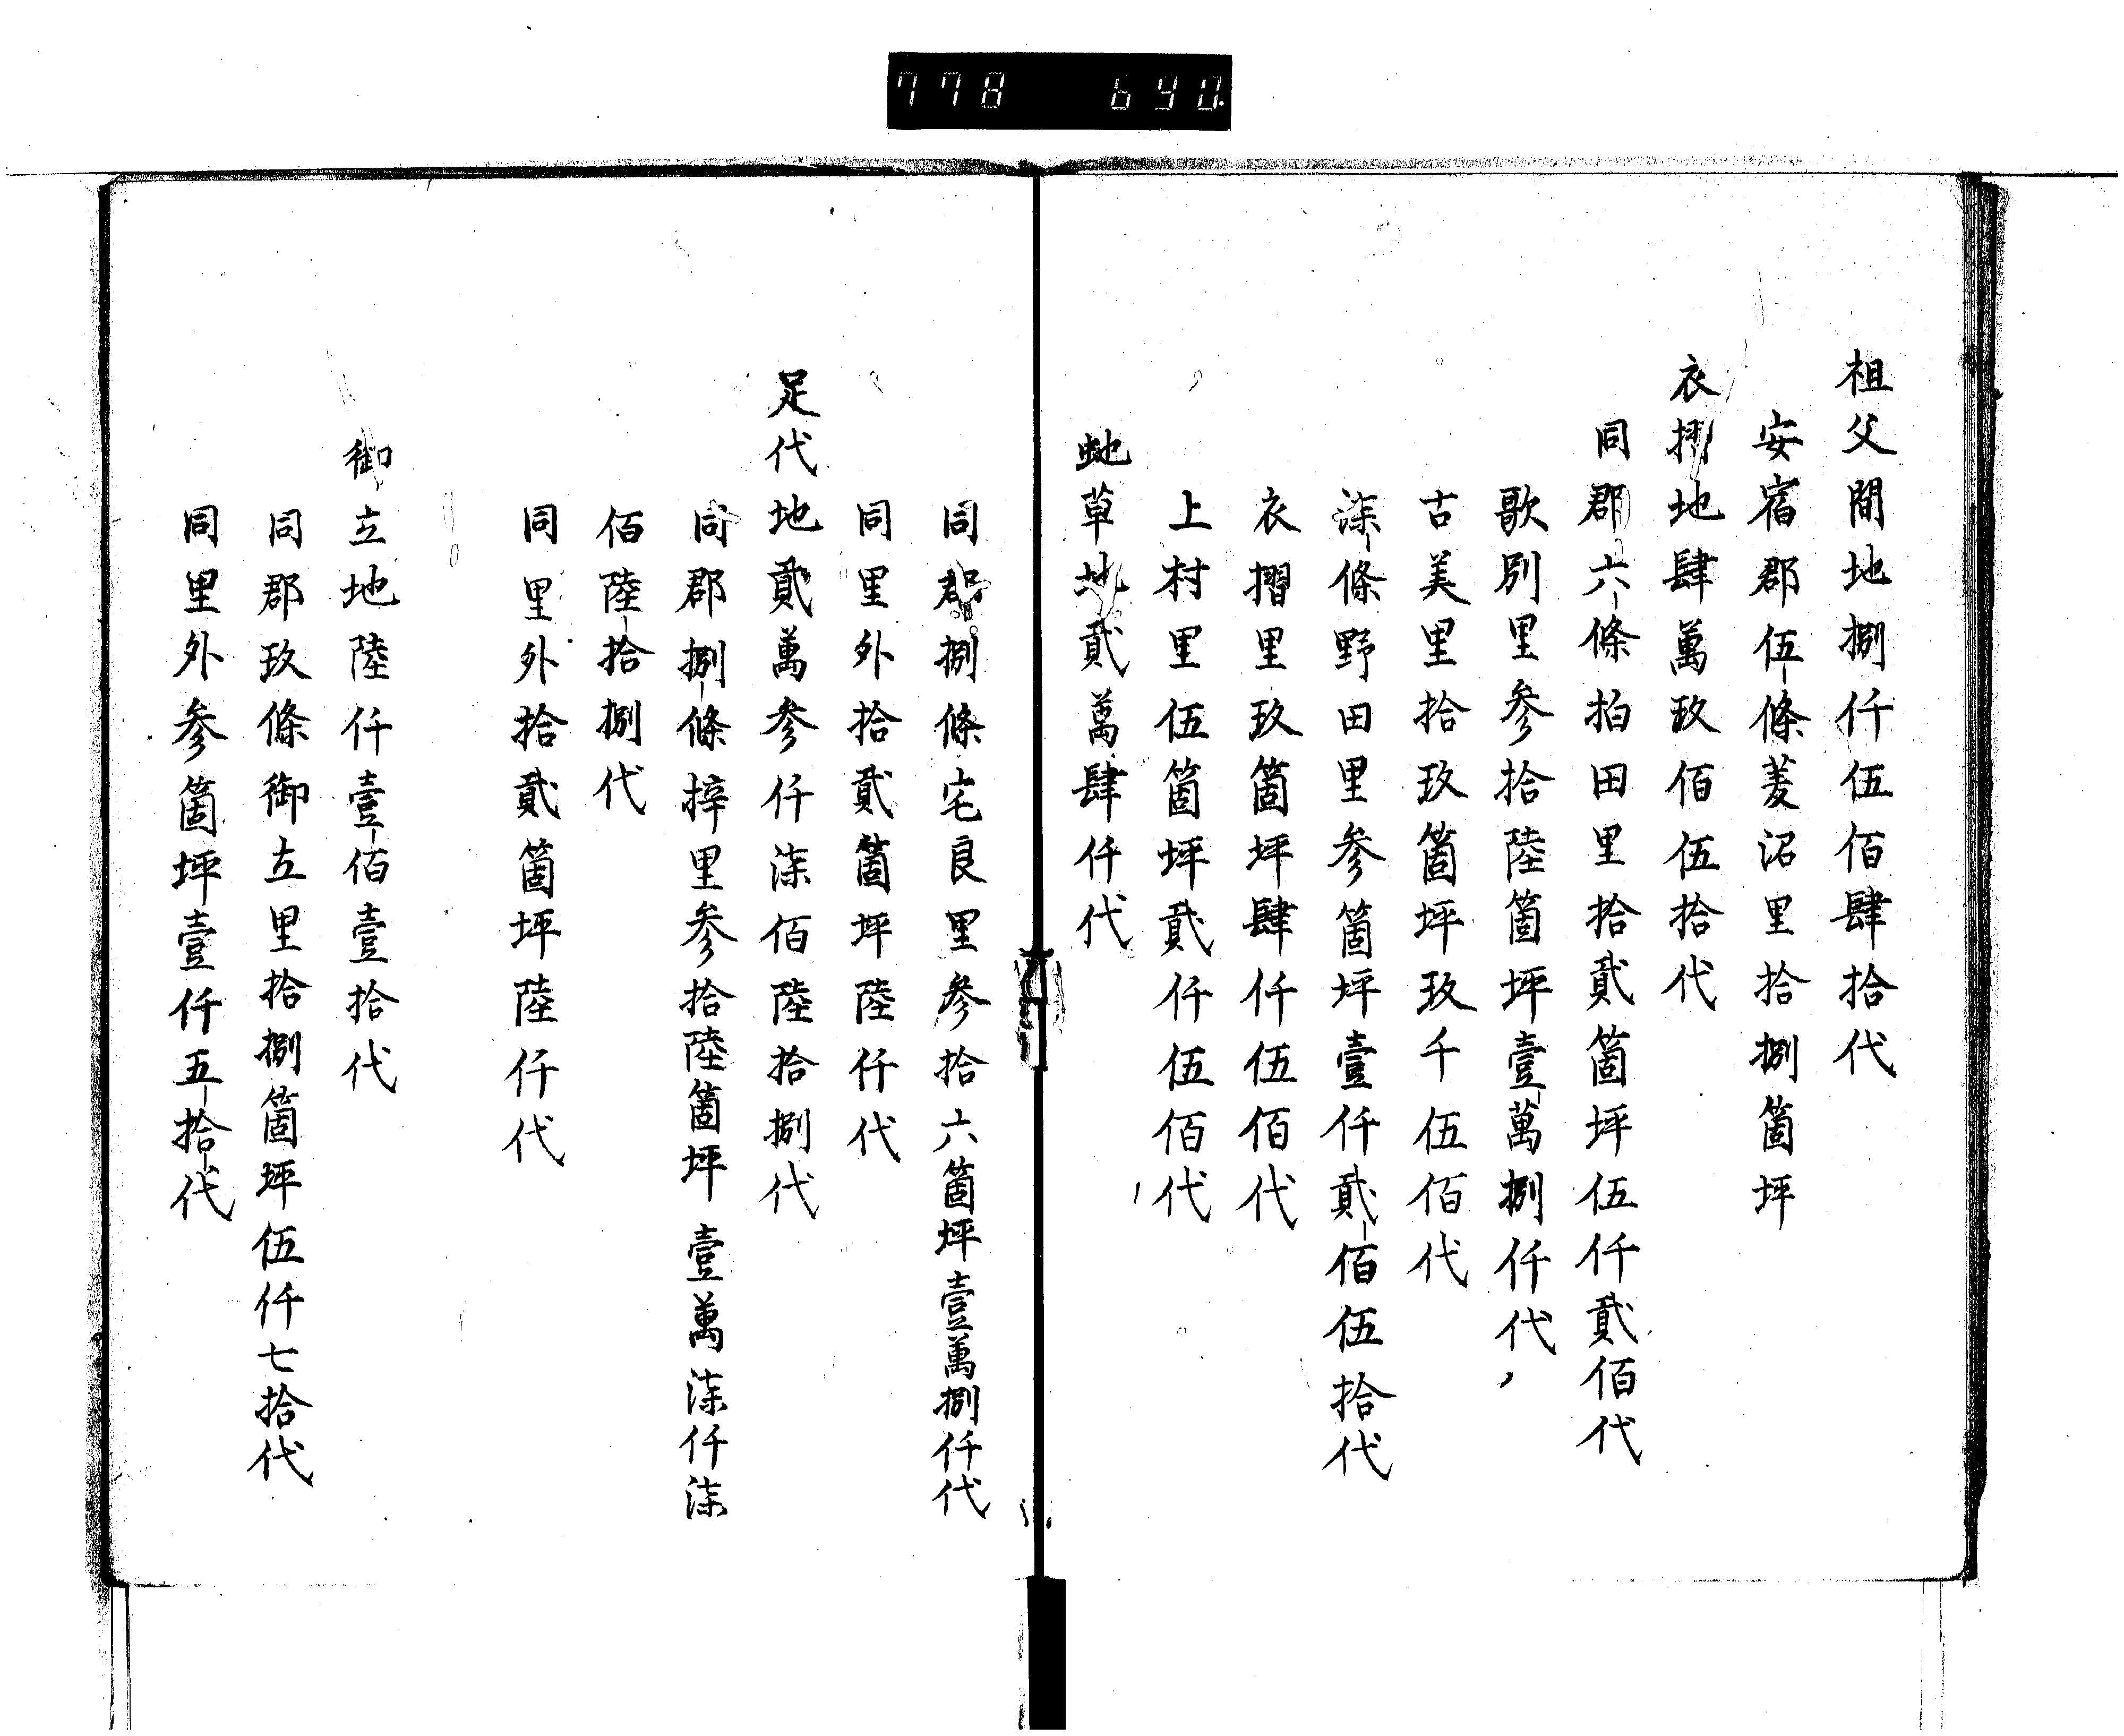 778 690.
祖父間地捌仟伍佰肆拾代
安宿郡伍條菱沼里拾捌箇坪
衣摺地肆萬玖佰伍拾代
同郡六條拍田里拾貳箇坪伍仟貳佰代
歌別里参拾陸箇坪壹萬捌仟代
古美里拾玖箇坪玖千伍佰代
漆條野田里参箇坪壹仟貳佰伍拾代
衣摺里玖箇坪肆仟伍佰代
上村里伍箇坪貳仟伍佰代
虵草地貳萬肆仟代
同郡捌條宅良里参拾六箇坪壹萬捌仟代
同里外拾貳箇坪陸仟代
足代地貳萬参仟漆佰陸拾捌代
同郡捌條梓里参拾陸箇坪壹萬漆仟漆
佰陸拾捌代
同里外拾貳箇坪陸仟代
御立地陸仟壹佰壹拾代
同郡玖條御立里拾捌箇坪伍仟七拾代
同里外参箇坪壹仟五拾代